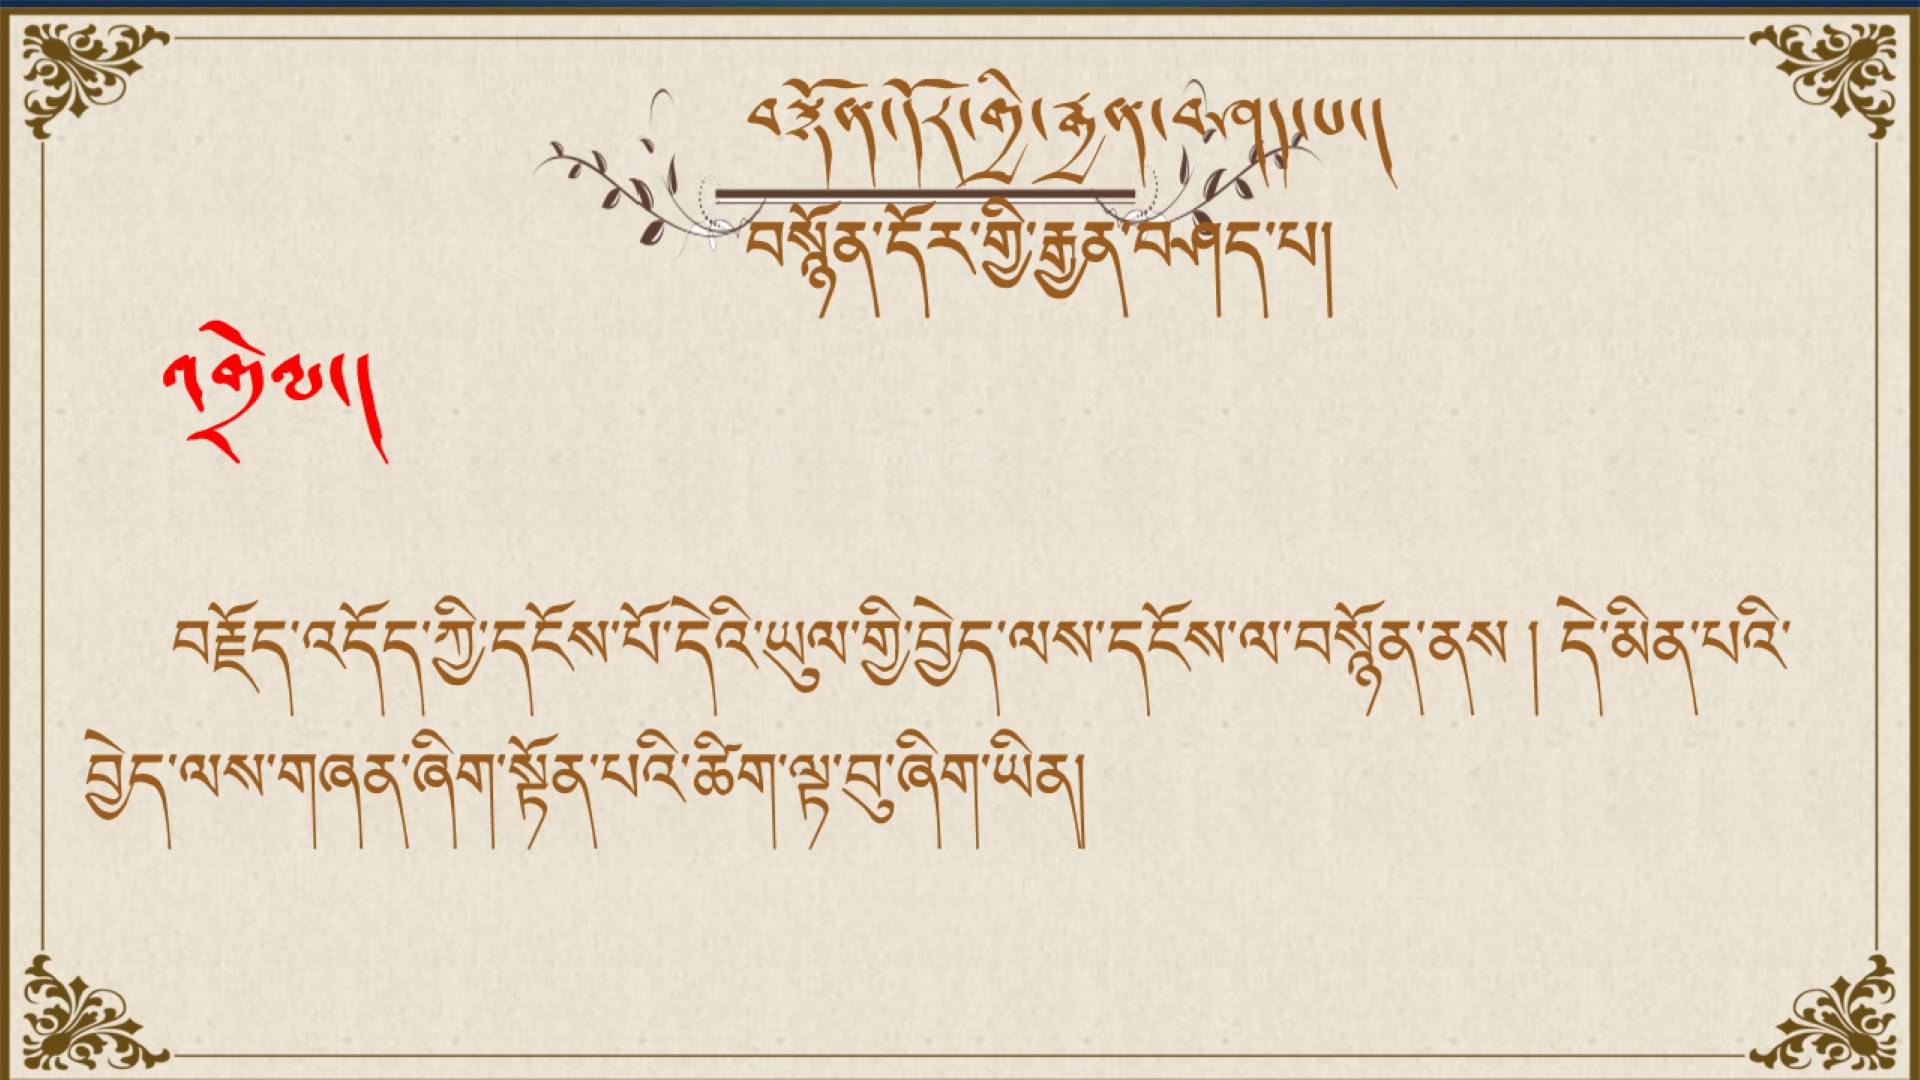 བསྙོན་དོར་གྱི་རྒྱན་བཤད་པ།
བསྙོན་དོར་གྱི་རྒྱན་བཤད་པ།
འགྲེལ།
བརྗོད་འདོད་ཀྱི་དངོས་པོ་དེའི་ཡུལ་གྱི་བྱེད་ལས་དངོས་ལ་བསྙོན་ནས། དེ་མིན་པའི་
བྱེད་ལས་གཞན་ཞིག་སྟོན་པའི་ཚིག་ལྟ་བུ་ཞིག་ཡིན།